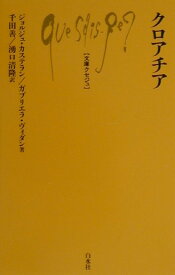 クロアチア
ジョルジュ・カステラン/ガブリエラ・ヴィダン著
千田善/湧口清隆訳
que sais-je?
【文庫クセジュ】
白水社